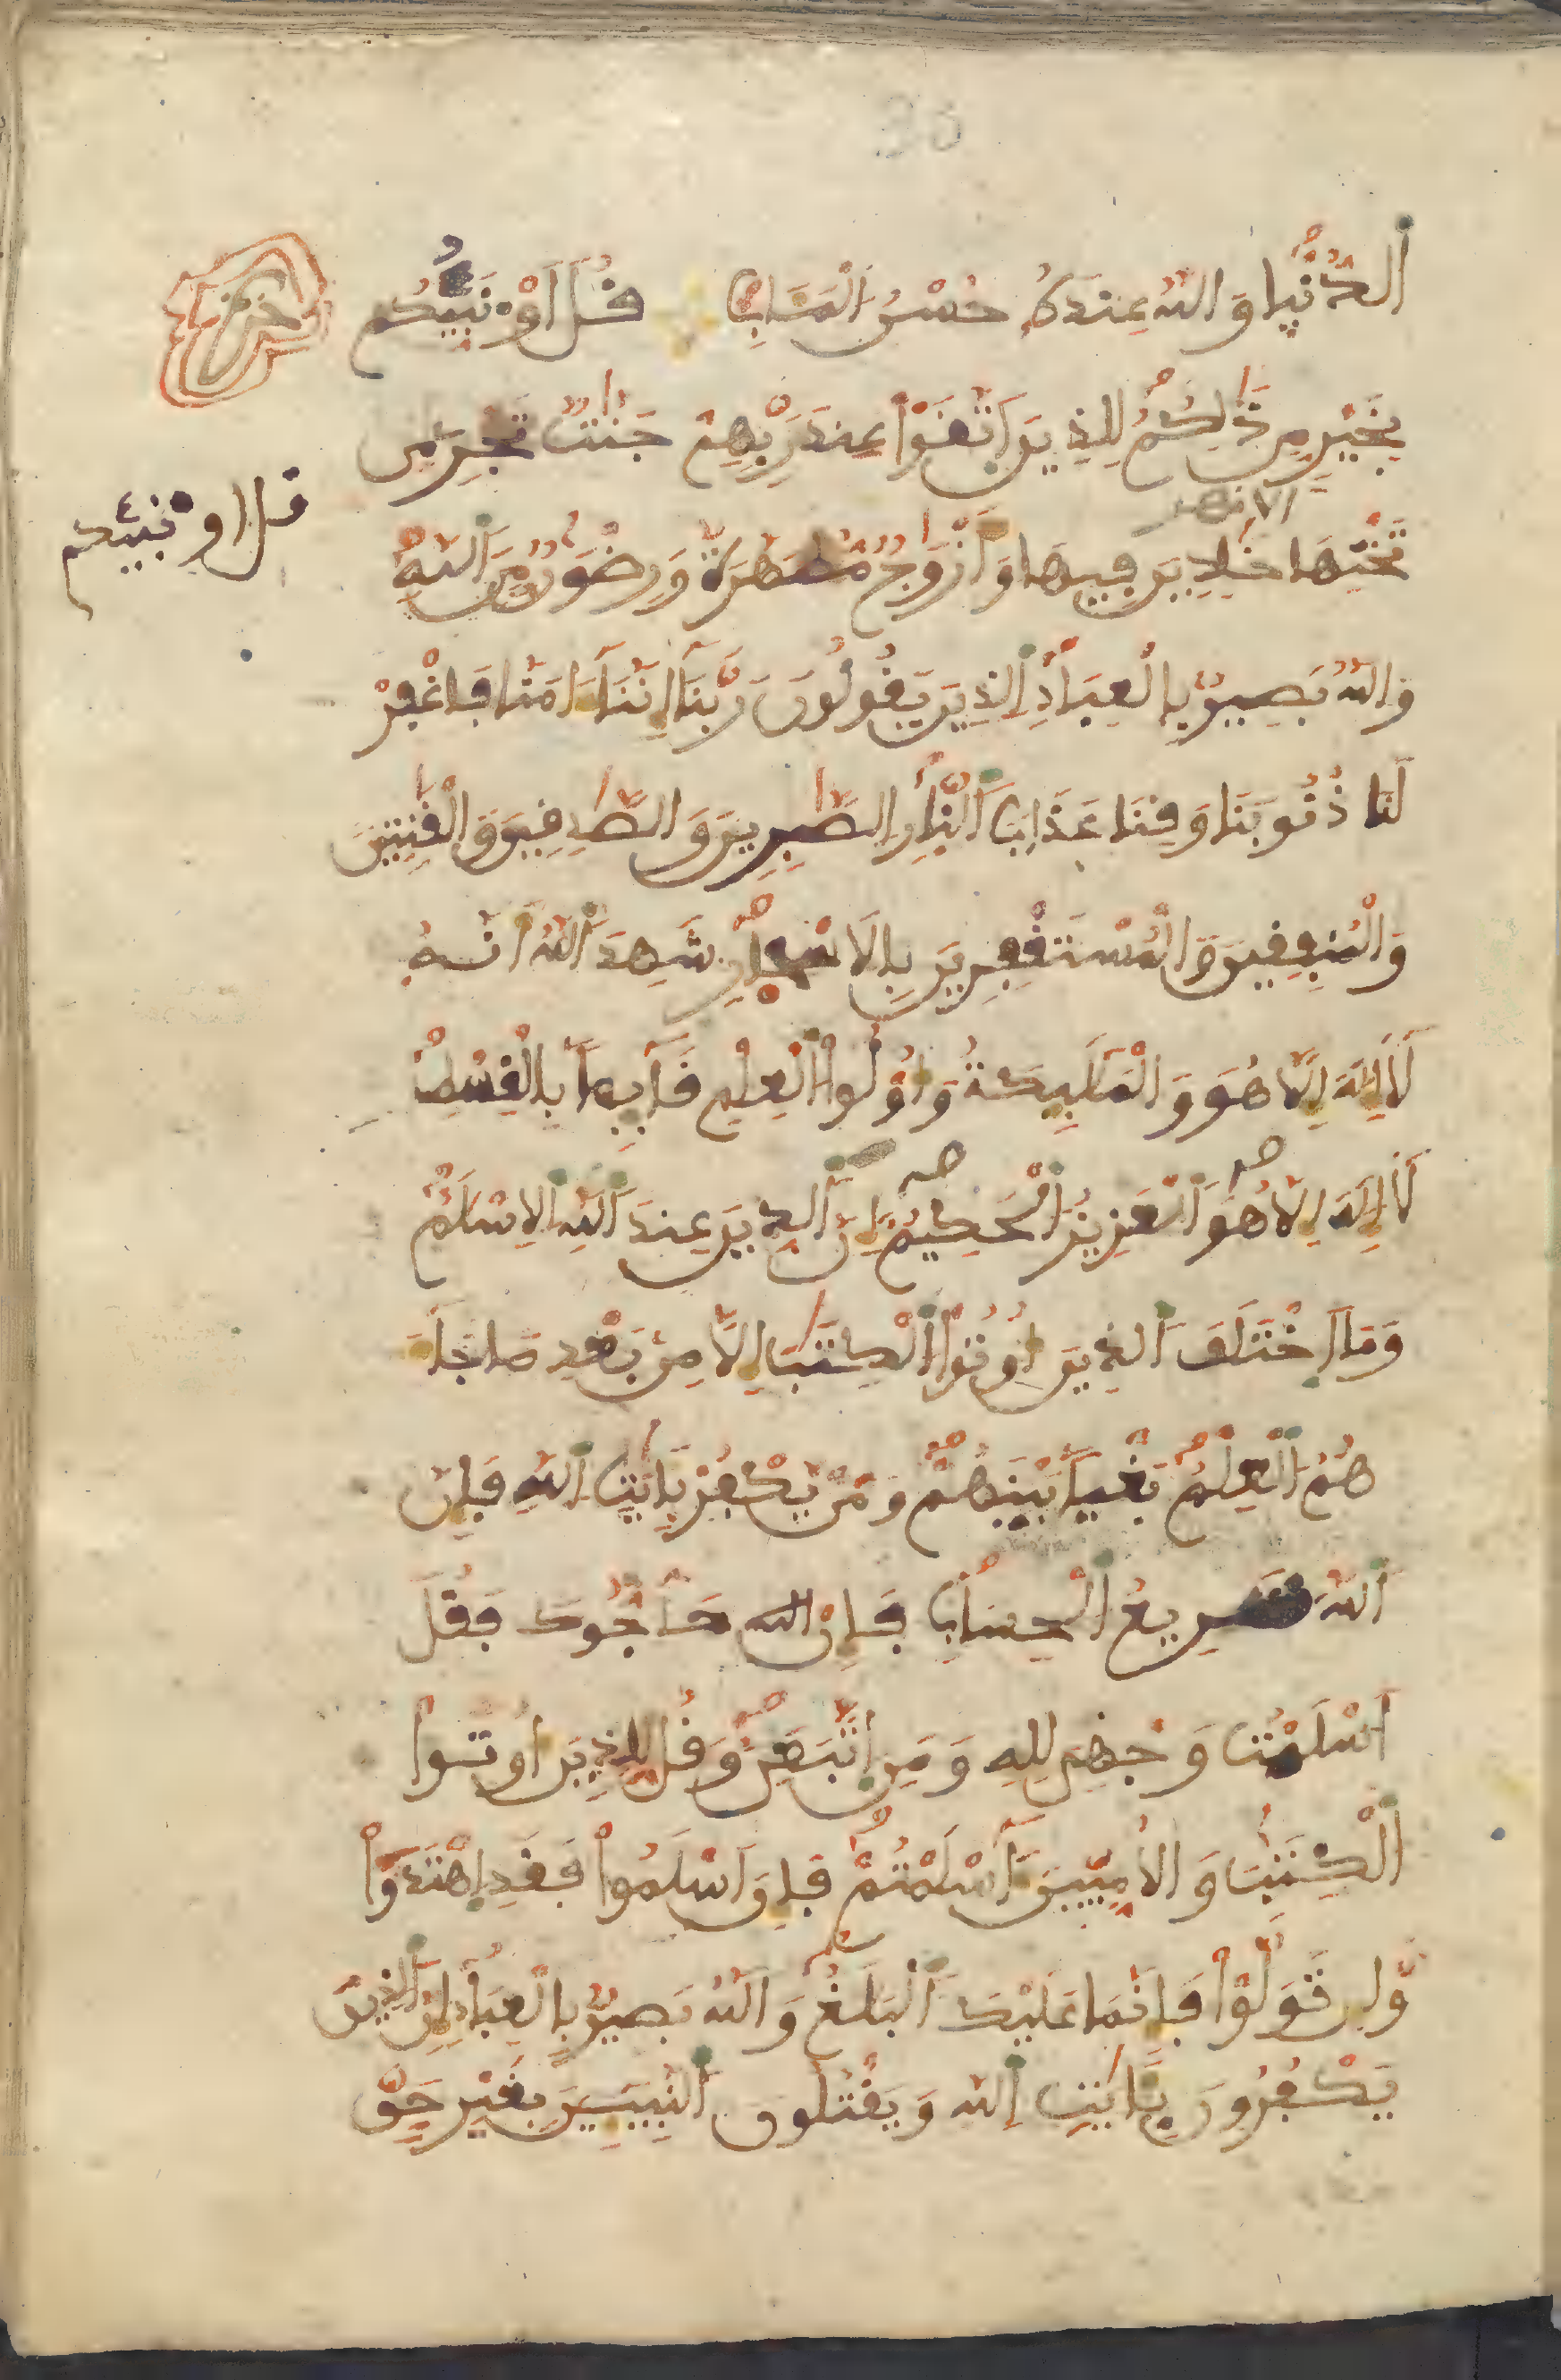 36
اَ۬لدُّنْيا وَاللَّهُ عِندَهُۥ حُسْنُ اَ۬لْمَـَٔابِ قُلَ اَوْ۟نَبِّئُكُم
حزب
بِخَيْرٍ مِّن ذَٰلِكُمْ لِلذِينَ اَ۪تَّقَوْا عِندَ رَبِّهِمْ جَنَّٰتٌ تَجْرِے مِن
الانهر
قل او۟نبئكم
تَحْتِهَا خَٰلِدِينَ فِيهَا وَأَزْوَٰجٌ مُّطَهَّرَةٌ وَرِضْوَٰنٌ مِّنَ اَ۬للَّهِ
وَاللَّهُ بَصِيرٌ بِالْعِبَادِ اِ۬لذِينَ يَقُولُونَ رَبَّنَا إِنَّنَا ءَامَنَّا فَاغْفِرْ
لَنَا ذُنُوبَنَا وَقِنَا عَذَابَ اَ۬لنَّارِ الصَّٰبِرِينَ وَالصَّٰدِقِينَ وَالْقَٰنِتِينَ
وَالْمُنفِقِينَ وَالْمُسْتَغْفِرِينَ بِالَاسْحارِ شَهِدَ اَ۬للَّهُ أَنَّهُ
لَا إِلَٰهَ إِلَّا هُوَ وَالْمَلَٰٓئِكَةُ وَأُوْلُوا اُ۬لْعِلْمِ قَآئِماً بِالْقِسْطِ
لَا إِلَٰهَ إِلَّا هُوَ اَ۬لْعَزِيزُ اُ۬لْحَكِيمُ إِنَّ اَ۬لدِّينَ عِندَ اَ۬للَّهِ اِ۬لِاسْلَٰمُ
وَمَا اَ۪خْتَلَفَ اَ۬لذِينَ أُوتُوا اُ۬لْكِتَٰبَ إِلَّا مِنۢ بَعْدِ مَا جَآءَ
هُمُ اُ۬لْعِلْمُ بَغْياً بَيْنَهُمْ وَمَنْ يَّكْفُرْ بِـَٔايَٰتِ اِ۬للَّهِ فَإِنَّ
اَ۬للَّهَ سَرِيعُ اُ۬لْحِسَابِ فَإِنْ الله حَآجُّوكَ فَقُلَ
اَسْلَمْتُ وَجْهِيَ لِلهِ وَمَنِ اِ۪تَّبَعَنِۦ وَقُل لِّلذِينَ أُوتُوا
اُ۬لْكِتَٰبَ وَالُامِّيِّينَ ءَآسْلَمْتُمْ فَإِنَ اَسْلَمُوا فَقَدِ اِ۪هْتَدَوا
وَّإِن تَوَلَّوْا فَإِنَّمَا عَلَيْكَ اَ۬لْبَلَٰغُ وَاللَّهُ بَصِيرٌ بِالْعِبَادِ إِنَّ اَ۬لذِينَ
يَكْفُرُونَ بِـَٔايَٰتِ اِ۬للَّهِ وَيَقْتُلُونَ اَ۬لنَّبِيٓـِٕينَ بِغَيْرِ حَقٍّ